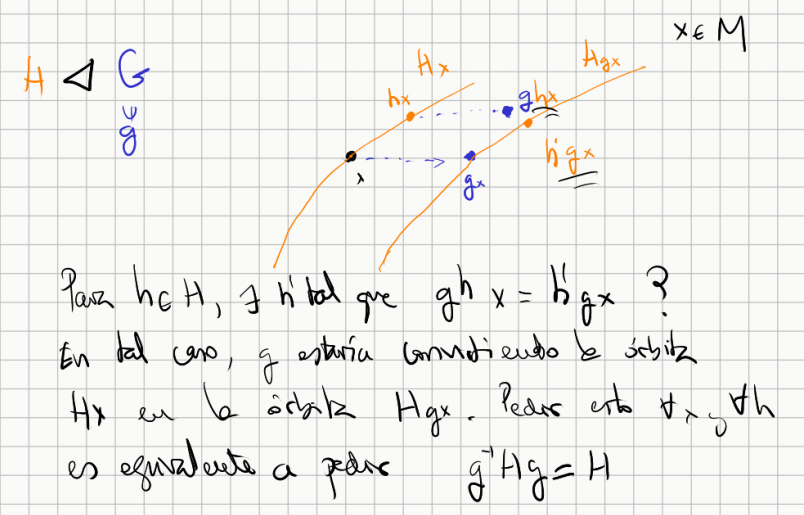 x ∈ M
H ◁ G
g
Hx
hx
x
Hgx
ghx
h'gx
gx
Para h ∈ H, ∃ h' tal que gh x = h'gx ?
En tal caso, g estaría convirtiendo la órbita
Hx en la órbita Hgx. Pedir esto ∀x y ∀h
es equivalente a pedir g⁻¹Hg = H